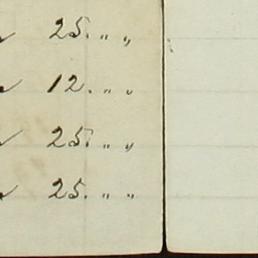 25. " "
12. " "
25. " "
25. " "